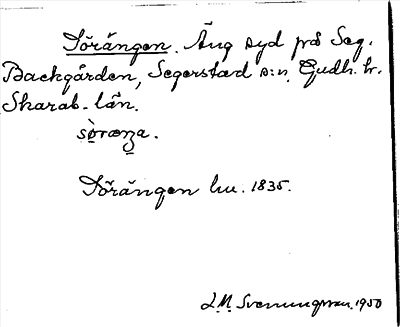 Sörängen. Äng syd på Seg.
Backgården, Segerstad s:n, Gudh. hr.
Skarab. län.
sö̀ræŋa.
Sörängen lu. 1835.
L.M. Svenungsson. 1950